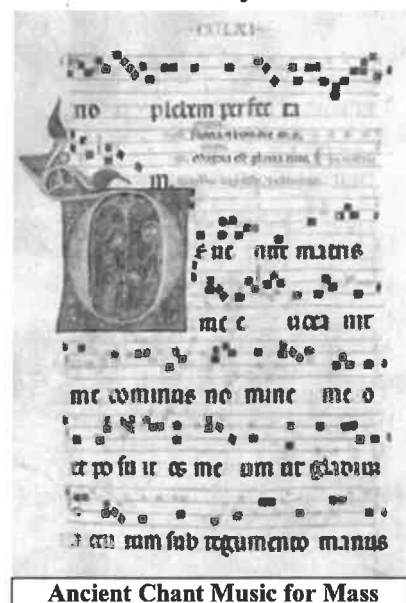 CCLXI
no plebem perfec ta
m
E ue ntre matris
me e uoca uit
me dominus no mine me o
et po su it os me um ut gladium
a cu tum sub tegumento manus
Ancient Chant Music for Mass